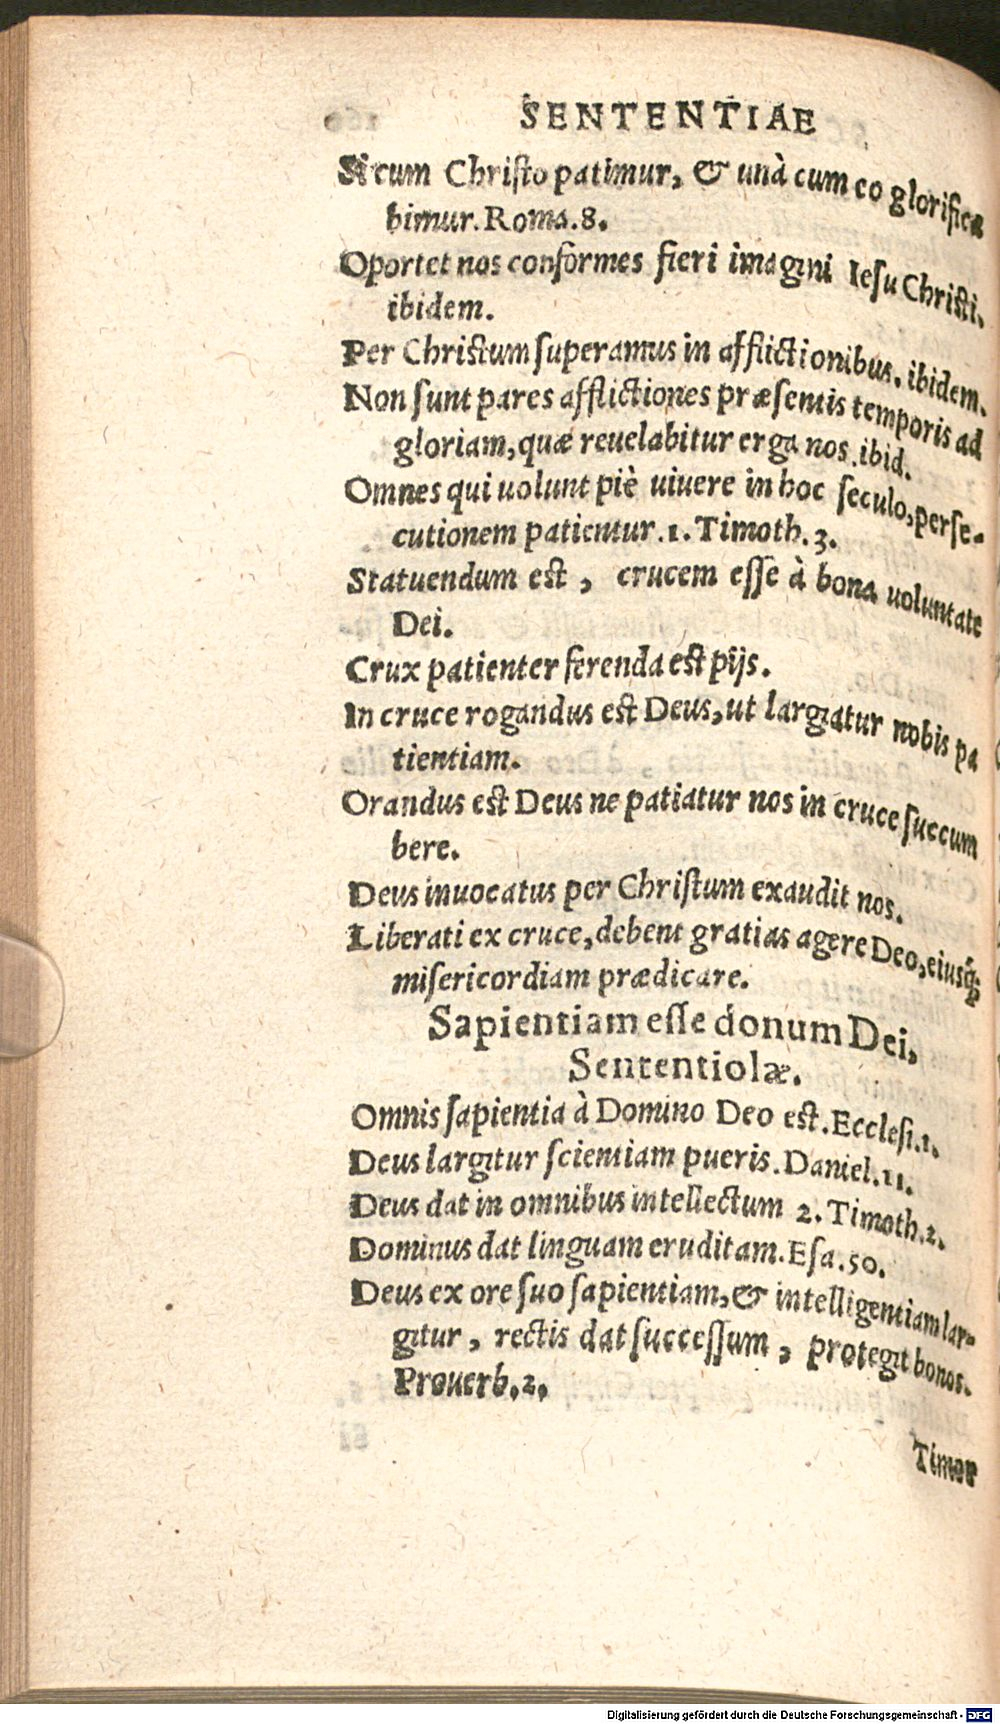 SENTENTIAE
Si cum Christo patimur, & unà cum eo glorifica
bimur. Roma. 8.
Oportet nos conformes fieri imagini Iesu Christi.
ibidem.
Per Christum superamus in afflictionibus. ibidem.
Non sunt pares afflictiones præsentis temporis ad
gloriam, quæ reuelabitur erga nos. ibid.
Omnes qui uolunt piè uiuere in hoc seculo, perse-
cutionem patientur. 1. Timoth. 3.
Statuendum est, crucem esse à bona uoluntate
Dei.
Crux patienter ferenda est pijs.
In cruce rogandus est Deus, ut largiatur nobis pa
tientiam.
Orandus est Deus ne patiatur nos in cruce succum
bere.
Deus inuocatus per Christum exaudit nos.
Liberati ex cruce, debent gratias agere Deo, eiusq́;
misericordiam prædicare.
Sapientiam esse donum Dei,
Sententiolæ.
Omnis sapientia à Domino Deo est. Ecclesi. 1.
Deus largitur scientiam pueris. Daniel. 11.
Deus dat in omnibus intellectum 2. Timoth. 2.
Dominus dat linguam eruditam. Esa. 50.
Deus ex ore suo sapientiam, & intelligentiam lar-
gitur, rectis dat successum, protegit bonos.
Prouerb. 2.
Timor
Digitalisierung gefördert durch die Deutsche Forschungsgemeinschaft - DFG